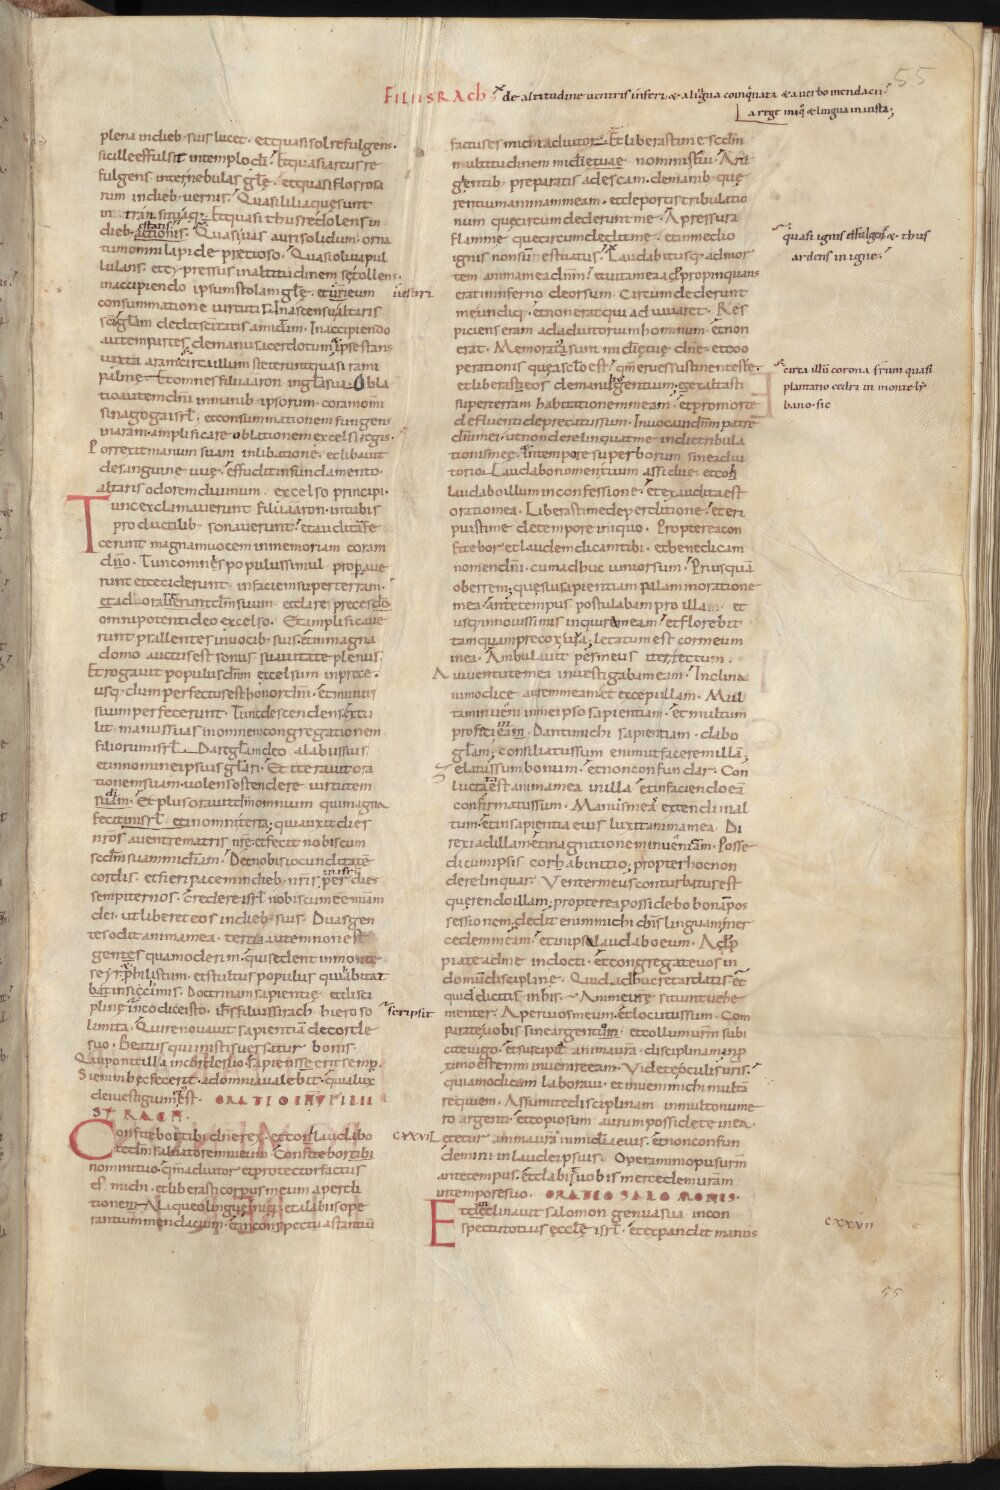 55
FILIUS RACH. de altitudine ventris inferi & a lingua coinq̅nata & a verbo mendacii.
a rege iniq̅ & lingua iniusta;
plena in dieb· suis lucet. et quasi sol refulgens.
sic ille effulsit in templo di̅. Et quasi arcus re
fulgens inter nebulas gl̅e. et quasi flos rosa
rum in dieb· vernis. Quasi lilia que sunt
in transitu aq̅. Et quasi thus redolens in
estatis
dieb. actionis. Quasi vas auri solidum. orna
tum omni lapide precioso. Quasi oliva pul
lulans. et cypressus in altitudinem se extollens.
in accipiendo ipsum stolam gl̅e. et
consummatione virtutis. In ascensu altaris
sc̅i gl̅am dedit sc̅itatis amictum. In accipiendo
autem partes de manu sacerdotum. ipse stans
iuxta aram. circa illum steterunt quasi rami
palme. Et omnes filii aaron in gl̅a sua. Obla
tio autem dn̅i in manib· ipsorum. coram omi̅
sinagoga isrl̅. et consummatione fungens
in aram. amplificare oblationem excelsi regis.
Porrexit manum suam in libatione. et libavit
de sanguine uve. effudit in fundamento
altaris odorem divinum. excelso principi.
Tunc exclamaverunt filii aaron. in tubis
productilib· sonaverunt. et auditam fe
cerunt magnam vocem in memoriam coram
dn̅o. Tunc omnes populus simul properave
runt et ceciderunt. in faciem super terram.
et adoraverunt dn̅m suum. et dare preces do̅
omnipotenti deo excelso. Et amplificave
runt psallentes in vocib· suis. et in magna
domo auctus est sonus suavitate plenus.
Et rogavit populus dn̅m excelsum in prece.
usq; dum perfectus est honor dn̅i. et munus
suum perfecerunt. Tunc descendens extu
lit manus suas in omnem congregationem
filiorum isrl̅. Dare gl̅am deo a labiis suis.
et in nomine ipsius gl̅ari. Et iteravit ora
tionem suam. volens ostendere virtutem
di̅. Et plus oravit dn̅m omnium qui magna
fecit in isrl̅. et in omni terra. qui auxit dies
nr̅os a ventre matris nr̅e. et fecit nobiscum
scdm̅ suam mid̅iam. Det nobis iocunditate̅
cordis. et fieri pacem in dieb· nr̅is per dies
sempiternos. credere isrl̅ nobiscum ee̅ miam
dei. ut liberet eos in dieb· suis. Duas gen
tes odit anima mea. tertia autem non est
gentes quam oderim. qui sedent in monte
seyr. philistum. et stultus populus qui habitat
in siccimis. Doctrinam sapientie et disci
pline in codice isto. ihs̅ filius sirach hieroso
limita. Qui renovavit sapientia̅ de corde
suo. Beatus qui in istis versatur bonis.
Qui ponit illa in corde suo. sapiens ee̅ erit semp.
Si enim hec fecerit. ad omnia valebit. quia lux
dei vestigium est. ORATIO IHU FILII
SYRACH.
Confitebor tibi dn̅e rex. et conlaudabo
te dm̅ salvatorem meum. Confitebor tibi
nomini tuo. qm̅ adiutor et protector factus
es michi. et liberasti corpus meum a perdi
tione. A laqueo lingue iniq̅. et a labiis ope
rantium mendacium. et in conspectu astantiu̅
scripsit
factus es michi adiutor. Et liberasti me scdm̅
multitudinem mid̅ie tue nominis tui. A ru
gientib· preparatis ad escam. de manib· que
rentium animam meam. et de portis tribulatio
num que circumdederunt me. A pressura
flamme que circumdedit me. et in medio
ignis non sum estuatus. Laudabit usq; ad mor
tem anima mea dn̅m. et vita mea adpropinquans
erat in inferno deorsum. Circumdederunt
me undiq;. et non erat qui adiuvaret. Res
piciens eram ad adiutorium hominum. et non
erat. Memoratus sum mid̅ie tue dn̅e. et coo
perationis que a seclo est. qm̅ erues sustinentes te.
et liberasti eos de manu gentium. exaltasti
super terram habitationem meam. et pro morte
defluenti deprecatus sum. Invocavi dn̅m patre̅
dn̅i mei. ut non derelinquat me in die tribula
tionis mee. in tempore superborum sine adiu
torio. Laudabo nomen tuum assidue. et con
laudabo illum in confessione. et exaudita est
oratio mea. Liberasti me de perditione. et eri
puisti me de tempore iniquo. Propterea con
fitebor et laudem dicam tibi. et benedicam
nomen dn̅i. cum adhuc iuvior sum. Priusqua̅
oberrem; quesivi sapientiam palam in oratione
mea. ante tempus postulabam pro illa. et
usq; in novissimis inquiram eam. et florebit
tamquam precox uva; letatum est cor meum
in ea. Ambulavit pes meus iter rectum.
A iuventute mea investigabam eam. Inclina
vi modice aurem meam. et excepi illam. Mul
tam inveni in me ipso sapientiam. et multum
profeci in eam. Danti michi sapientiam. dabo
gl̅am; consiliatus sum enim ut facerem illam;
zelatus sum bonum. et non confundar. Con
luctata est anima mea in illa. et in faciendo ea̅
confirmatus sum. Manus meas extendi in al
tum. et in sapientia eius luxit anima mea. Di
rexi ad illam. et in agnitione inveni eam. Posse
di cum ipsis cor ab initio; propter hoc non
derelinquar. Venter meus conturbatus est
querendo illam; propterea possidebo bona̅ pos
sessionem; dedit enim michi dn̅s linguam mer
cedem meam. et in ipsa laudabo eum. Adp
piate ad me indocti. et congregate vos in
domum discipline. Quid adhuc retardatis. et
quid dicitis in his. Anime vr̅e sitiunt vehe
menter. Aperui os meum. et locutus sum. Com
parate vobis sine argentum. et collum vr̅m subi
cite iugo. et suscipiat anima vr̅a. disciplinam. in p
ximo est enim invenire eam. Videte oculis vr̅is.
quia modicam laboravi. et inveni michi multa̅
requiem. Assumite disciplinam in multo nume
ro argenti. et copiosum aurum possidete in ea.
CXXVI. Letetur anima vr̅a in mid̅ia eius. et non confun
demini in laude ipsius. Operamini opus vr̅m
ante tempus. et dabit vobis mercedem vr̅am
in tempore suo. ORATIO SALOMONIS.
Et declinavit salomon genua sua in con
spectu totius eccl̅e isrl̅. et expandit manus
quasi ignis effulgens & thus
ardens in igne.
circa illu̅ corona fr̅um quasi
plantatio cedri in monte ly
bano. sic
cxxvii
55